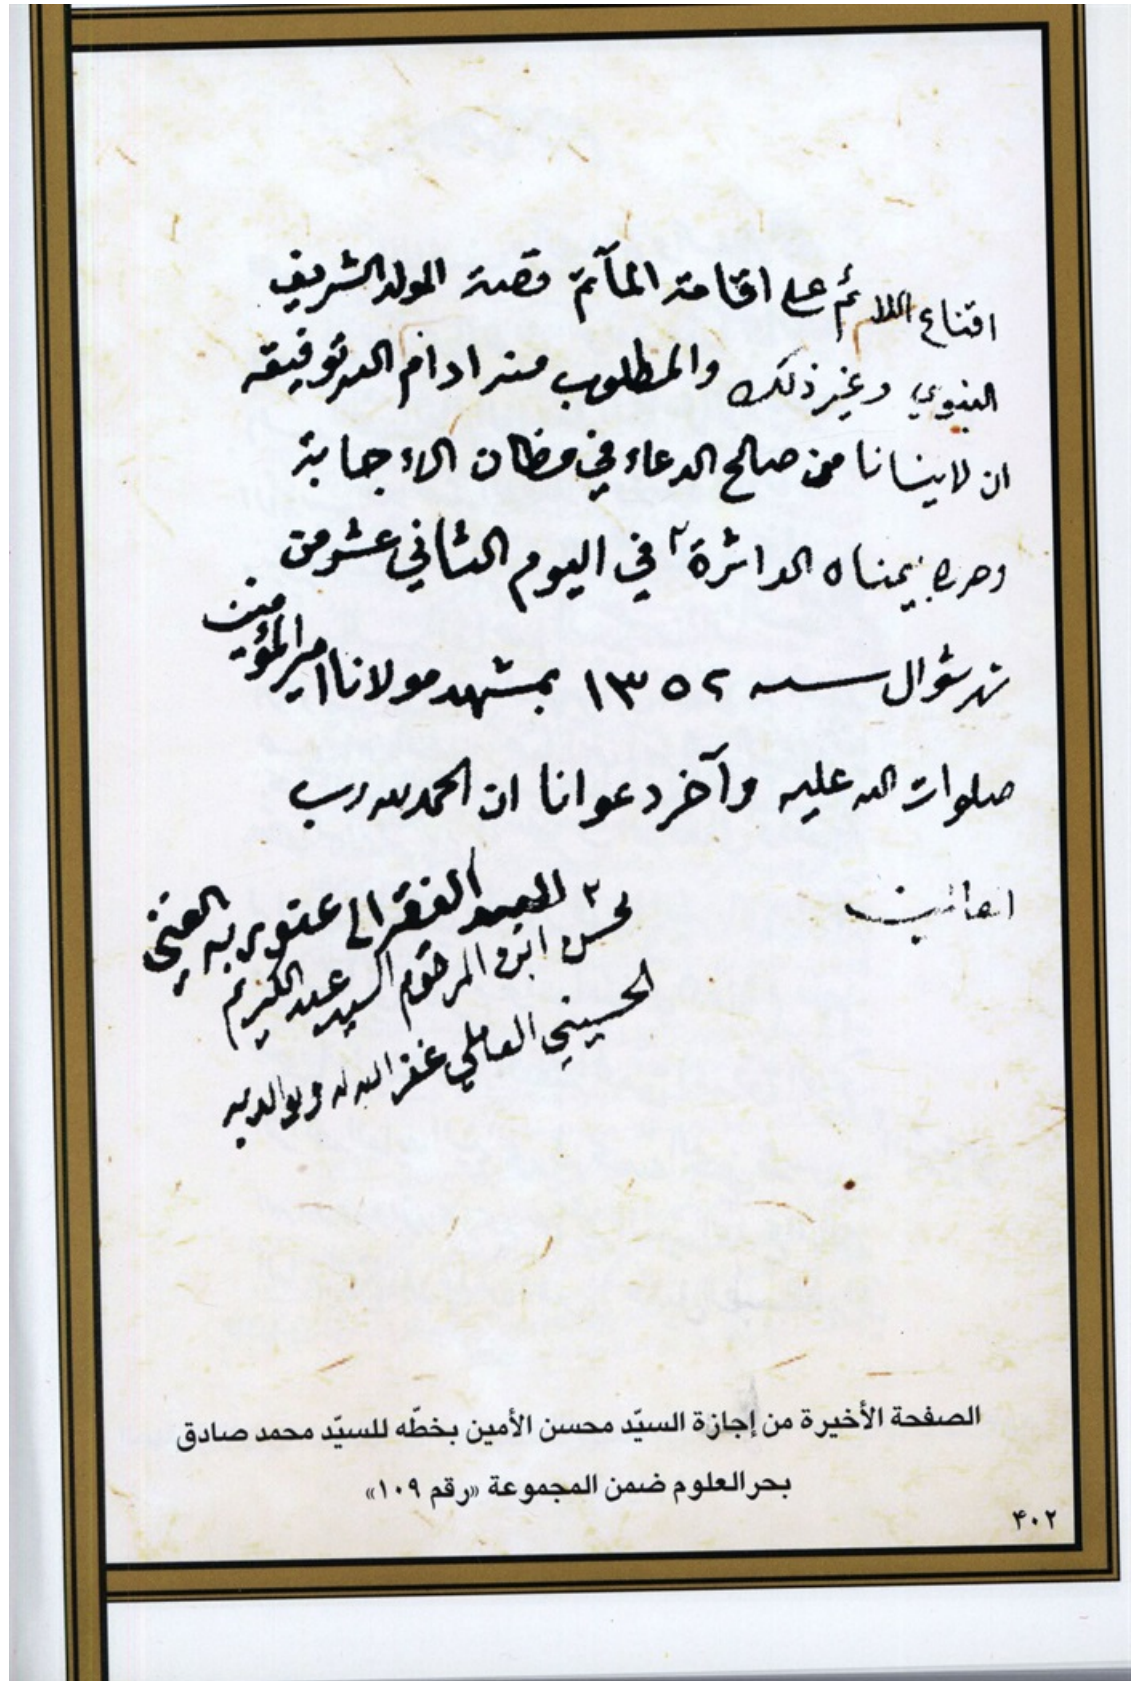 اقناع اللائم على اقامة المآتم قصة المولد الشريف
النبوي وغير ذلك والمطلوب منه ادام الله توفيقه
ان لا ينسانا من صالح الدعاء في مظان الاجابة
وحرره بيمناه الداثرة في اليوم الثاني عشر من
شهر شوال سنه ١٣٥٢ بمشهد مولانا امير المؤمنين
صلوات الله عليه وآخر دعوانا ان الحمد لله رب
العالمين
العبد الفقير الى عفو ربه الغني
محسن ابن المرحوم السيد عبد الكريم
الحسيني العاملي غفر الله له ولوالديه
الصفحة الأخيرة من إجازة السيّد محسن الأمين بخطّه للسيّد محمد صادق
بحر العلوم ضمن المجموعة «رقم ١٠٩»
۴۰۲